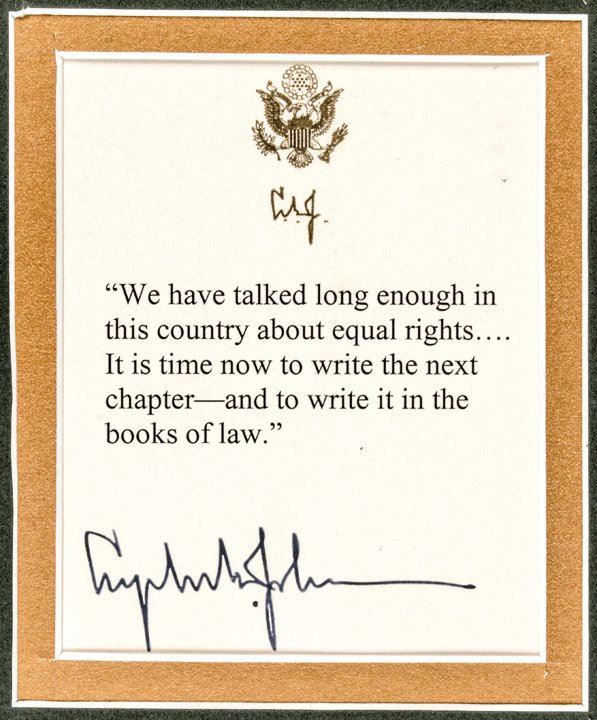 LBJ
“We have talked long enough in
this country about equal rights….
It is time now to write the next
chapter—and to write it in the
books of law.”
Lyndon B. Johnson